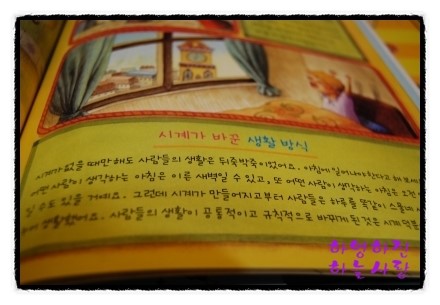 시계가 바꾼 생활 방식
시계가 없을 때만 해도 사람들의 생활은 뒤죽박죽이었어요. 아침에 일어나야 한다고 해 보세
어떤 사람이 생각하는 아침은 이른 새벽일 수 있고, 또 어떤 사람이 생각하는 아침은
일 수도 있을 거예요. 그런데 시계가 만들어지고부터 사람들은 하루를 똑같이
생활했어요. 사람들의 생활이 공통적이고 규칙적으로 바뀌게 된 것은 시계 덕분